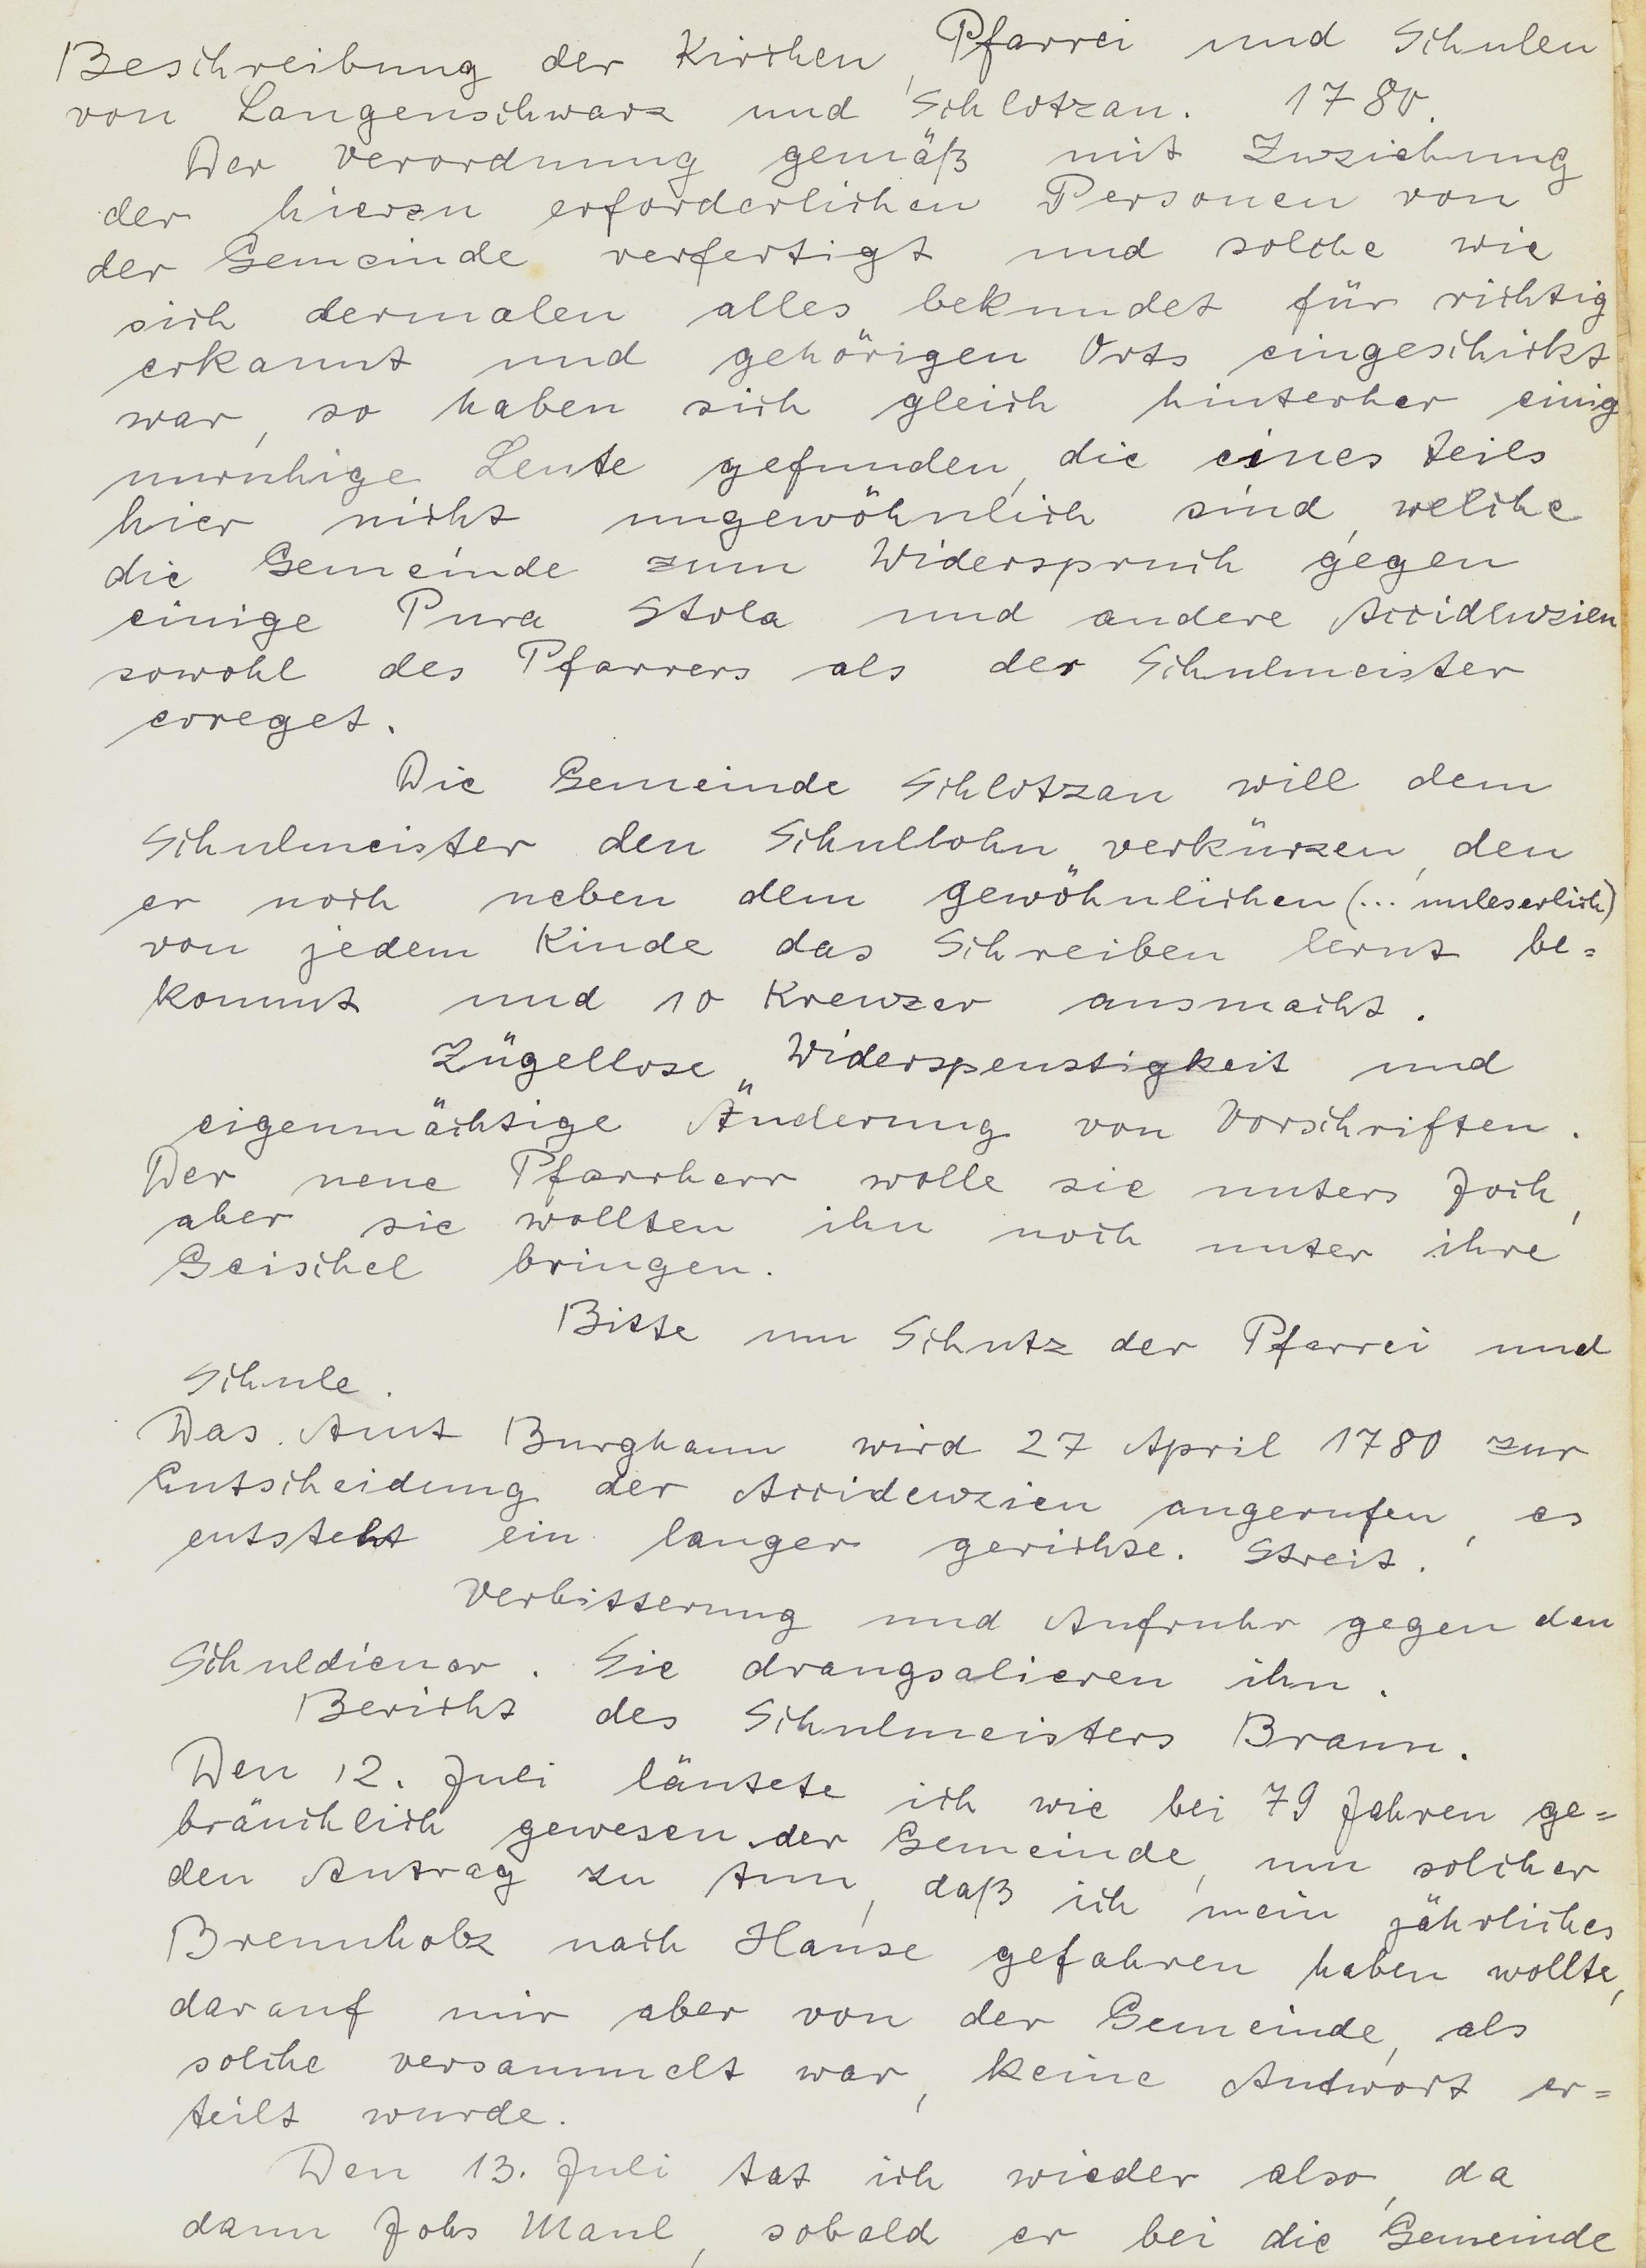 Beschreibung der Kirchen, Pfarrei und Schulen
von Langenschwarz und Schlotzau. 1780.
Der Verordnung gemäß mit Zuziehung
der hierzu erforderlichen Personen von
der Gemeinde verfertigt und solche wie
sich dermalen alles bekundet für richtig
erkannt und gehörigen Orts eingeschickt
war, so haben sich gleich hinterher einig
unruhige Leute gefunden, die eines teils
hier nicht ungewöhnlich sind, welche
die Gemeinde zum Widerspruch gegen
einige Pura Stola und andere Accidenzien
sowohl des Pfarrers als der Schulmeister
erreget.
Die Gemeinde Schlotzau will dem
Schulmeister den Schullohn verkürzen, den
er noch neben dem gewöhnlichen (... unleserlich)
von jedem Kinde das Schreiben lernt be=
kommt und 10 Kreuzer ausmacht.
Zügellose Widerspenstigkeit und
eigenmächtige Änderung von Vorschriften.
Der neue Pfarrherr wolle sie unters Joch,
aber sie wollten ihn noch unter ihre
Geischel bringen.
Bitte um Schutz der Pfarrei und
Schule.
Das Amt Burghaun wird 27 April 1780 zur
Entscheidung der Accidenzien angerufen, es
entsteht ein langer gerichte. Streit.
Verbitterung und Aufruhr gegen den
Schuldiener. Sie drangsalieren ihn.
Bericht des Schulmeisters Braun.
Den 12. Juli läutete ich wie bei 79 Jahren ge=
bräuchlich gewesen der Gemeinde, um solcher
den Antrag zu tun, daß ich mein jährliches
Brennholz nach Hause gefahren haben wollte,
darauf mir aber von der Gemeinde, als
solche versammelt war, keine Antwort er=
teilt wurde.
Den 13. Juli tat ich wieder also, da
dann Johs Maul, sobald er bei die Gemeinde